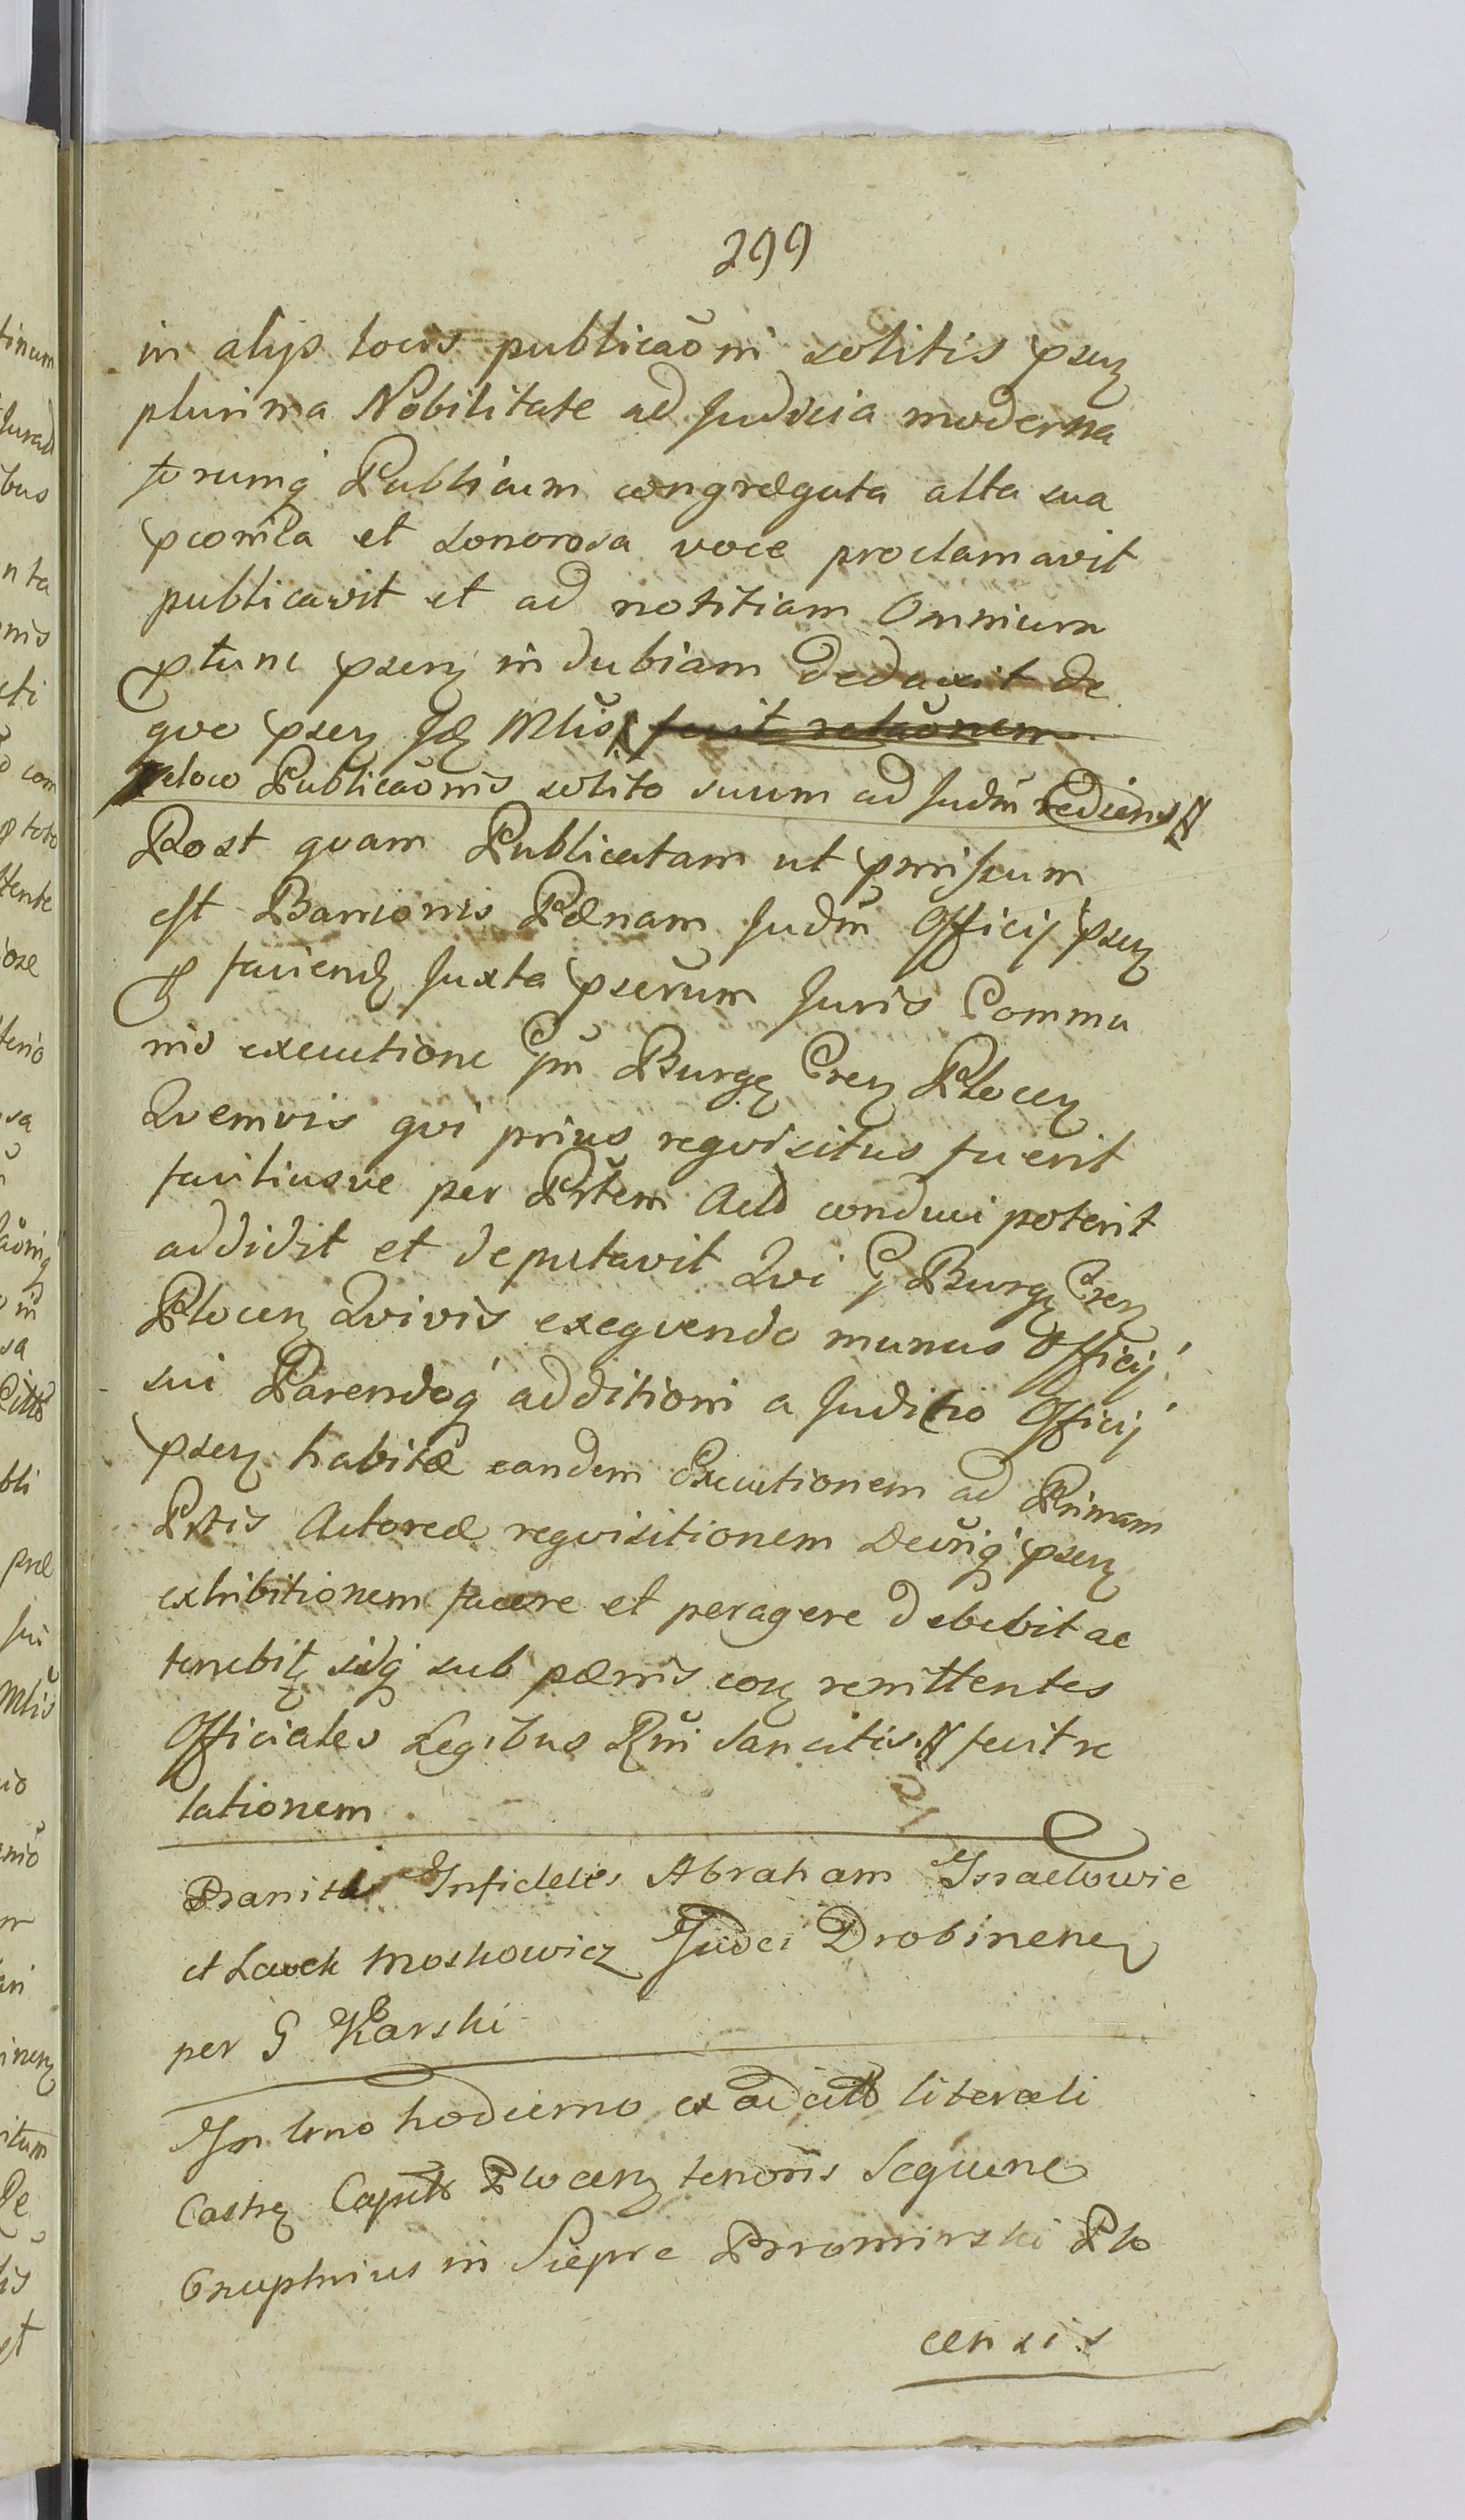 299
in alijs locis publicaõni solitis pseꝫ
plurima Nobilitate ad Judicia moderna
forumq́ Publicum congregata alta sua
pconica et sonorosa voce proclamavit
publicavit et ad notitiam Omnium
ptunc pseꝫ indubiam deduxit de
quo pseꝫ Jdꝫ Mlis fecit relaõnem
e loco Publicaõnis solito suum ad Judm̃ rediens
Post quam Publicatam ut pmissum
est Bannionis Pœnam Judm̃ Officij pseꝫ
p faciendꝫ Juxta pscrum Juris Commu
nis executione Gm̃ Burgꝫ Creꝫ Plocenꝫ
Quemvis qvi prius reqvisitus fuerit
faciliusve per Ptem Act conduci poterit
addidit et deputavit Qvi G Burgꝫ Creꝫ
Plocenꝫ Qvivis exeqvendo munus Officij
sui Parendoq́ additioni a Judicio Officij
pseꝫ habitæ eandem Executionem ad Primam
Ptis Actoreæ reqvisitionem Decrĩq́ pseꝫ
exhibitionem facere et peragere debebit ac
tenebitꝫ idq́ sub pœnis coꝫ renittentes
Officiales Legibus Rgni sancitis fecit re
lationem
Baniti Infideles Abraham Israelowic
et Lewek Moskowicz Judei Drobinenꝫ
per G Karski
In tmo hodierno ex adcitto literali
Castrꝫ Capitt Plocenꝫ tenoris Sequenꝫ
Onuphrius in Siepre Bromirski Plo
censis